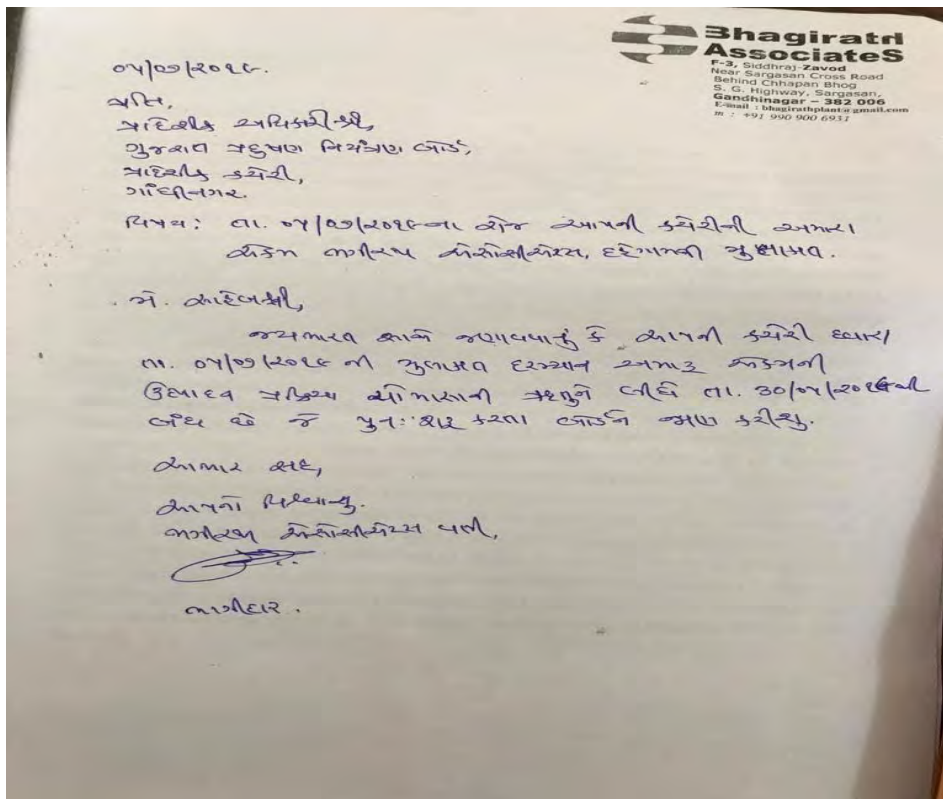 Bhagirath
AssociateS
F-3, Siddhraj-Zavod
Near Sargasan Cross Road
Behind Chhapan Bhog
S. G. Highway, Sargasan,
Gandhinagar – 382 006
E-mail : bhagirathplant@gmail.com
m : +91 990 900 6931
૦૫/૦૭/૨૦૧૯.
પ્રતિ,
પ્રાદેશીક અધિકારીશ્રી,
ગુજરાત પ્રદુષણ નિયંત્રણ બોર્ડ,
પ્રાદેશીક કચેરી,
ગાંધીનગર.
વિષય: તા. ૦૫/૦૭/૨૦૧૯ના રોજ આપની કચેરીની અમારા
એકમ ભગીરથ એસોસીએટસ, દહેગામની મુલાકાત.
મે. સાહેબશ્રી,
જયભારત સાથે જણાવવાનું કે આપની કચેરી દ્વારા
તા. ૦૫/૦૭/૨૦૧૯ ની મુલાકાત દરમ્યાન અમારૂ એકમની
ઉત્પાદન પ્રક્રિયા ચોમાસાની ઋતુને લીધે તા. ૩૦/૦૫/૨૦૧૯થી
બંધ છે જે પુન: શરૂ કરતા બોર્ડને જાણ કરીશું.
આભાર સહ,
આપનો વિશ્વાસુ.
ભગીરથ એસોસીએટસ વતી,
ભાગીદાર.